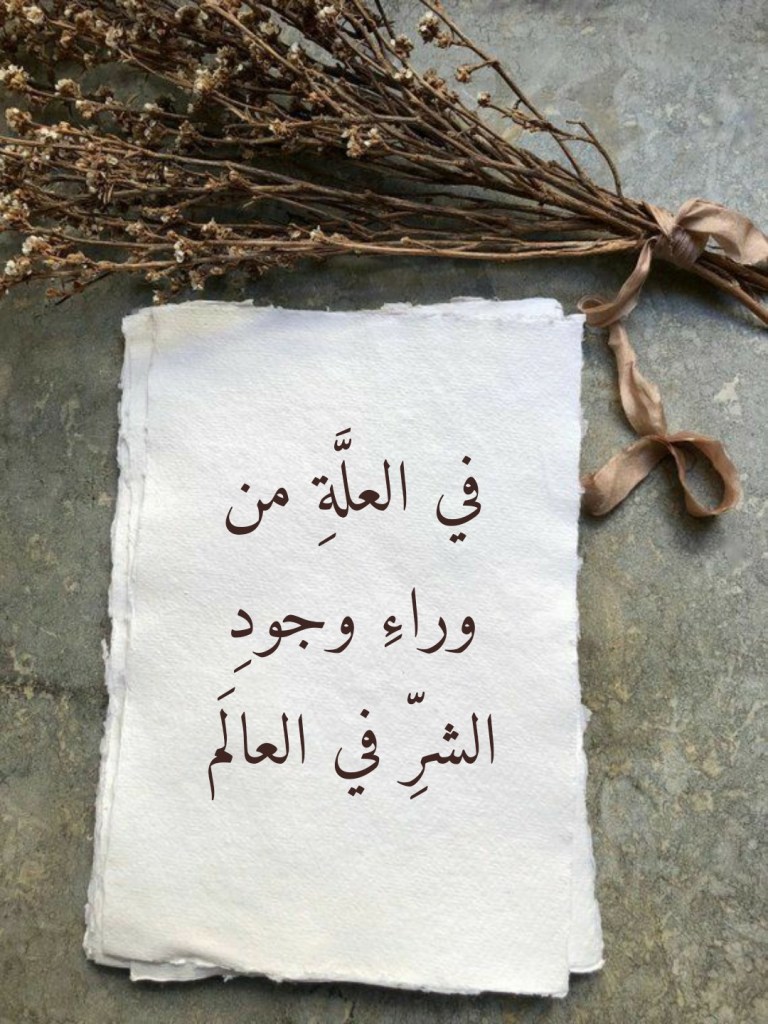 في العلَّةِ من
وراءِ وجودِ
الشرِّ في العالَم